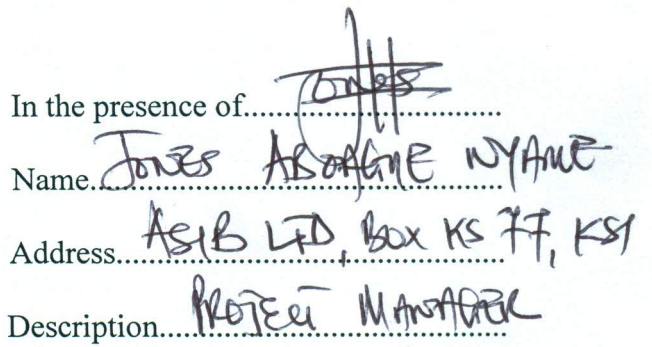 In the presence of..... Jones
Name..... JONES ABOAGYE NYAME
Address..... ASIB LTD, BOX KS 77, KSI
Description..... PROJECT MANAGER